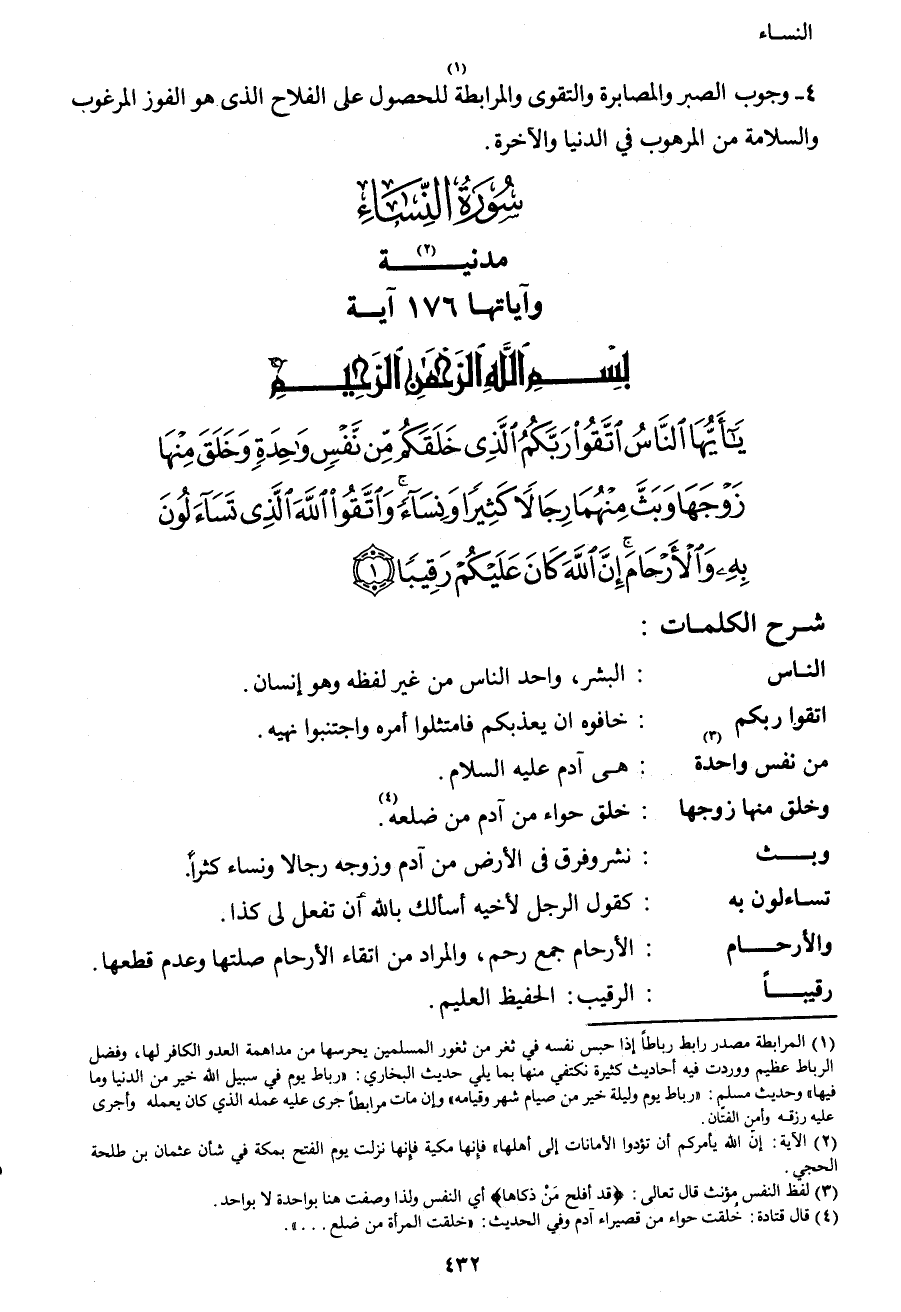 النساء
(١)
٤ـ وجوب الصبر والمصابرة والتقوى والمرابطة للحصول على الفلاح الذى هو الفوز المرغوب
والسلامة من المرهوب في الدنيا والآخرة.
سُورَةُ النِّسَاءِ
مدنيـــــة (٢)
وآياتها ١٧٦ آيـة
بِسْمِ اللَّهِ الرَّحْمَٰنِ الرَّحِيمِ
يَٰٓأَيُّهَا ٱلنَّاسُ ٱتَّقُوا۟ رَبَّكُمُ ٱلَّذِى خَلَقَكُم مِّن نَّفْسٍ وَٰحِدَةٍ وَخَلَقَ مِنْهَا
زَوْجَهَا وَبَثَّ مِنْهُمَا رِجَالًا كَثِيرًا وَنِسَآءً ۚ وَٱتَّقُوا۟ ٱللَّهَ ٱلَّذِى تَسَآءَلُونَ
بِهِۦ وَٱلْأَرْحَامَ ۚ إِنَّ ٱللَّهَ كَانَ عَلَيْكُمْ رَقِيبًا ١
شـرح الكلمـات :
النـاس : البشر، واحد الناس من غير لفظه وهو إنسان.
اتقوا ربكم : خافوه ان يعذبكم فامتثلوا أمره واجتنبوا نهيه.
من نفس واحدة (٣) : هـى آدم عليه السلام.
وخلق منها زوجها : خلق حواء من آدم من ضلعه(٤).
وبـــث : نشر وفرق فى الأرض من آدم وزوجه رجالا ونساء كثراً.
تساءلون به : كقول الرجل لأخيه أسألك بالله أن تفعل لى كذا.
والأرحـــام : الأرحام جمع رحم، والمراد من اتقاء الأرحام صلتها وعدم قطعها.
رقيبـــاً : الرقيب: الحفيظ العليم.
(١) المرابطة مصدر رابط رباطاً إذا حبس نفسه في ثغر من ثغور المسلمين يحرسها من مداهمة العدو الكافر لها، وفضل
الرباط عظيم ووردت فيه أحاديث كثيرة نكتفي منها بما يلي حديث البخاري: «رباط يوم في سبيل الله خير من الدنيا وما
فيها» وحديث مسلم: «رباط يوم وليلة خير من صيام شهر وقيامه» وإن مات مرابطاً جرى عليه عمله الذي كان يعمله وأجرى
عليه رزقه وأمن الفتّان.
(٢) الآية: إنّ الله يأمركم أن تؤدوا الأمانات إلى أهلها» فإنها مكية فإنها نزلت يوم الفتح بمكة في شأن عثمان بن طلحة
الحجي.
(٣) لفظ النفس مؤنث قال تعالى: ﴿قد أفلح مَنْ ذكاها﴾ أي النفس ولذا وصفت هنا بواحدة لا بواحد.
(٤) قال قتادة: خُلقت حواء من قصيراء آدم وفي الحديث: «خلقت المرأة من ضلع . . .».
٤٣٢